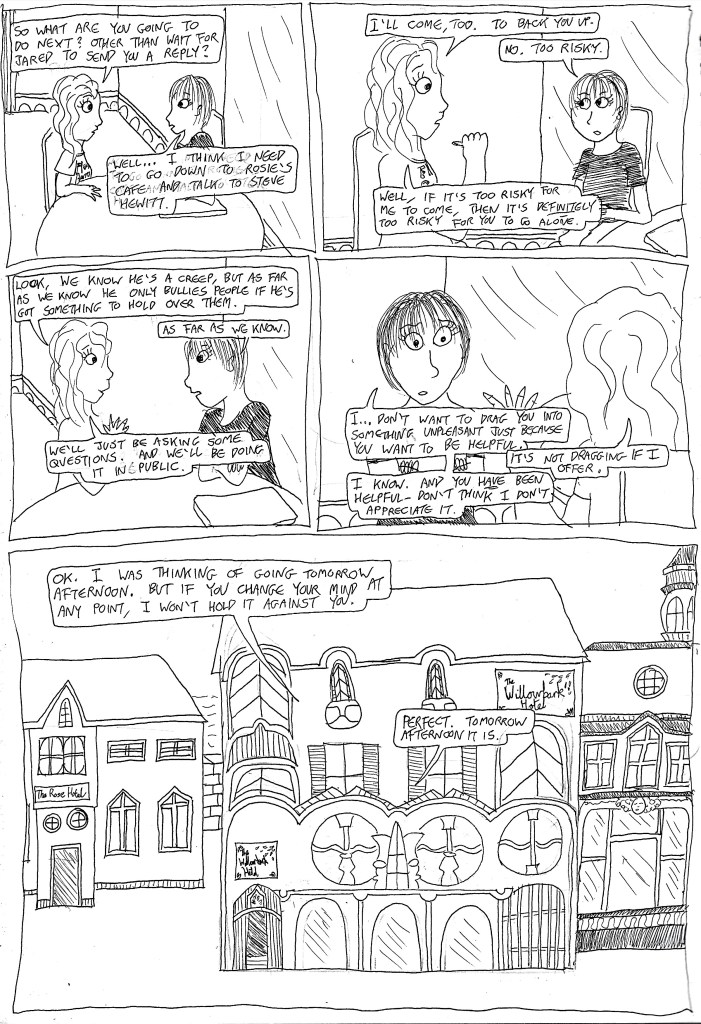 SO WHAT ARE YOU GOING TO
DO NEXT? OTHER THAN WAIT FOR
JARED TO SEND YOU A REPLY?
WELL... I THINK I NEED
TO GO DOWN TO ROSIE'S
CAFE AND TALK TO STEVE
HEWITT.
I'LL COME, TOO. TO BACK YOU UP.
NO. TOO RISKY.
WELL, IF IT'S TOO RISKY FOR
ME TO COME, THEN IT'S DEFINITELY
TOO RISKY FOR YOU TO GO ALONE.
LOOK, WE KNOW HE'S A CREEP, BUT AS FAR
AS WE KNOW HE ONLY BULLIES PEOPLE IF HE'S
GOT SOMETHING TO HOLD OVER THEM.
AS FAR AS WE KNOW.
WE'LL JUST BE ASKING SOME
QUESTIONS. AND WE'LL BE DOING
IT IN PUBLIC.
I... DON'T WANT TO DRAG YOU INTO
SOMETHING UNPLEASANT JUST BECAUSE
YOU WANT TO BE HELPFUL.
IT'S NOT DRAGGING IF I
OFFER.
I KNOW. AND YOU HAVE BEEN
HELPFUL - DON'T THINK I DON'T
APPRECIATE IT.
OK. I WAS THINKING OF GOING TOMORROW
AFTERNOON. BUT IF YOU CHANGE YOUR MIND AT
ANY POINT, I WON'T HOLD IT AGAINST YOU.
The
Willowbank
Hotel
PERFECT. TOMORROW
AFTERNOON IT IS.
The Rose Hotel
The
Willowbank
Hotel